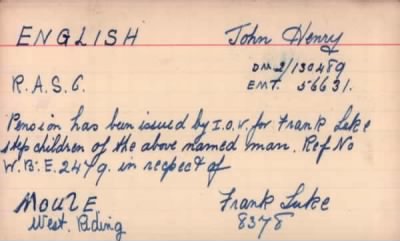 ENGLISH John Henry
DM2/130489
R.A.S.C. EMT. 56631.
Pension has been issued by I.O.V. for Frank Luke
step children of the above named man. Ref No
W.B.E.2479. in respect of
Frank Luke
West. Riding 8378